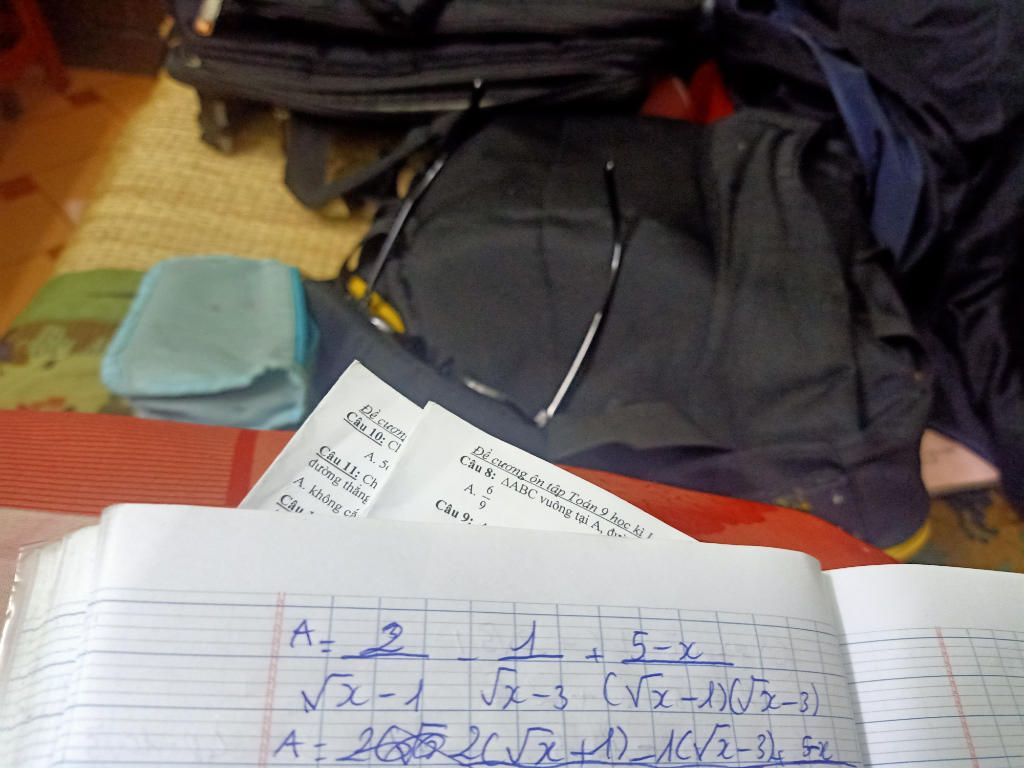 Đề cương
Câu 10: Ch
A. 5
Câu 11: Ch
đường thẳng
A. không cắ
Câu
Đề cương ôn tập Toán 9 học kì I
Câu 8: ΔABC vuông tại A,
A. 6/9
Câu 9:
A = 2/(√x − 1) − 1/(√x − 3) + (5 − x)/((√x − 1)(√x − 3))
A = 2 2(√x + 1) − 1(√x − 3) + 5 − x